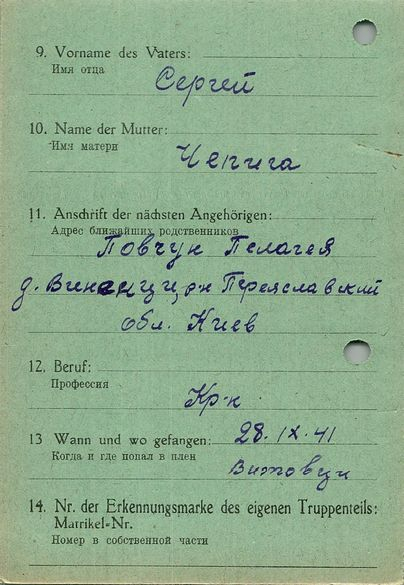 9. Vorname des Vaters:
Имя отца
Сергей
10. Name der Mutter:
Имя матери
Чепига
11. Anschrift der nächsten Angehörigen:
Адрес ближайших родственников
Повчун Пелагея
д. Вининци, рн Переяславский
обл. Киев
12. Beruf:
Профессия
Кр-н
13 Wann und wo gefangen: 28. IX. 41
Когда и где попал в плен
Витовци
14. Nr. der Erkennungsmarke des eigenen Truppenteils:
Matrikel-Nr.
Номер в собственной части